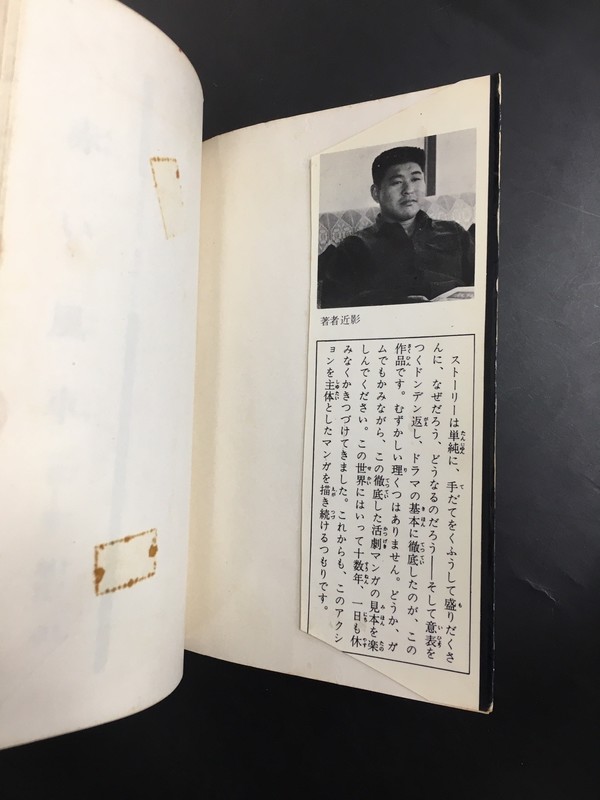 著者近影
ストーリーは単純に、手だてをくふうして盛りだくさ
んに、なぜだろう、どうなるのだろう──そして意表を
つくドンデン返し、ドラマの基本に徹底したのが、この
作品です。むずかしい理くつはありません。どうか、ガ
ムでもかみながら、この徹底した活劇マンガの見本を楽
しんでください。この世界にはいって十数年、一日も休
みなくかきつづけてきました。これからも、このアクシ
ョンを主体としたマンガを描き続けるつもりです。